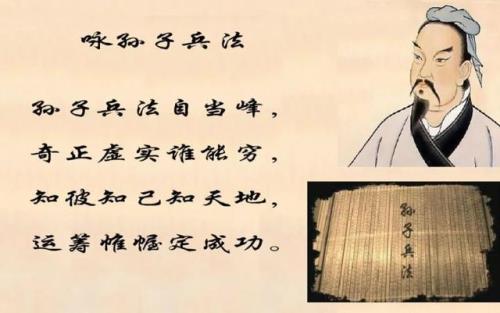 咏孙子兵法
孙子兵法自当峰，
奇正虚实谁能穷，
知彼知己知天地，
运筹帷幄定成功。
孙子兵法